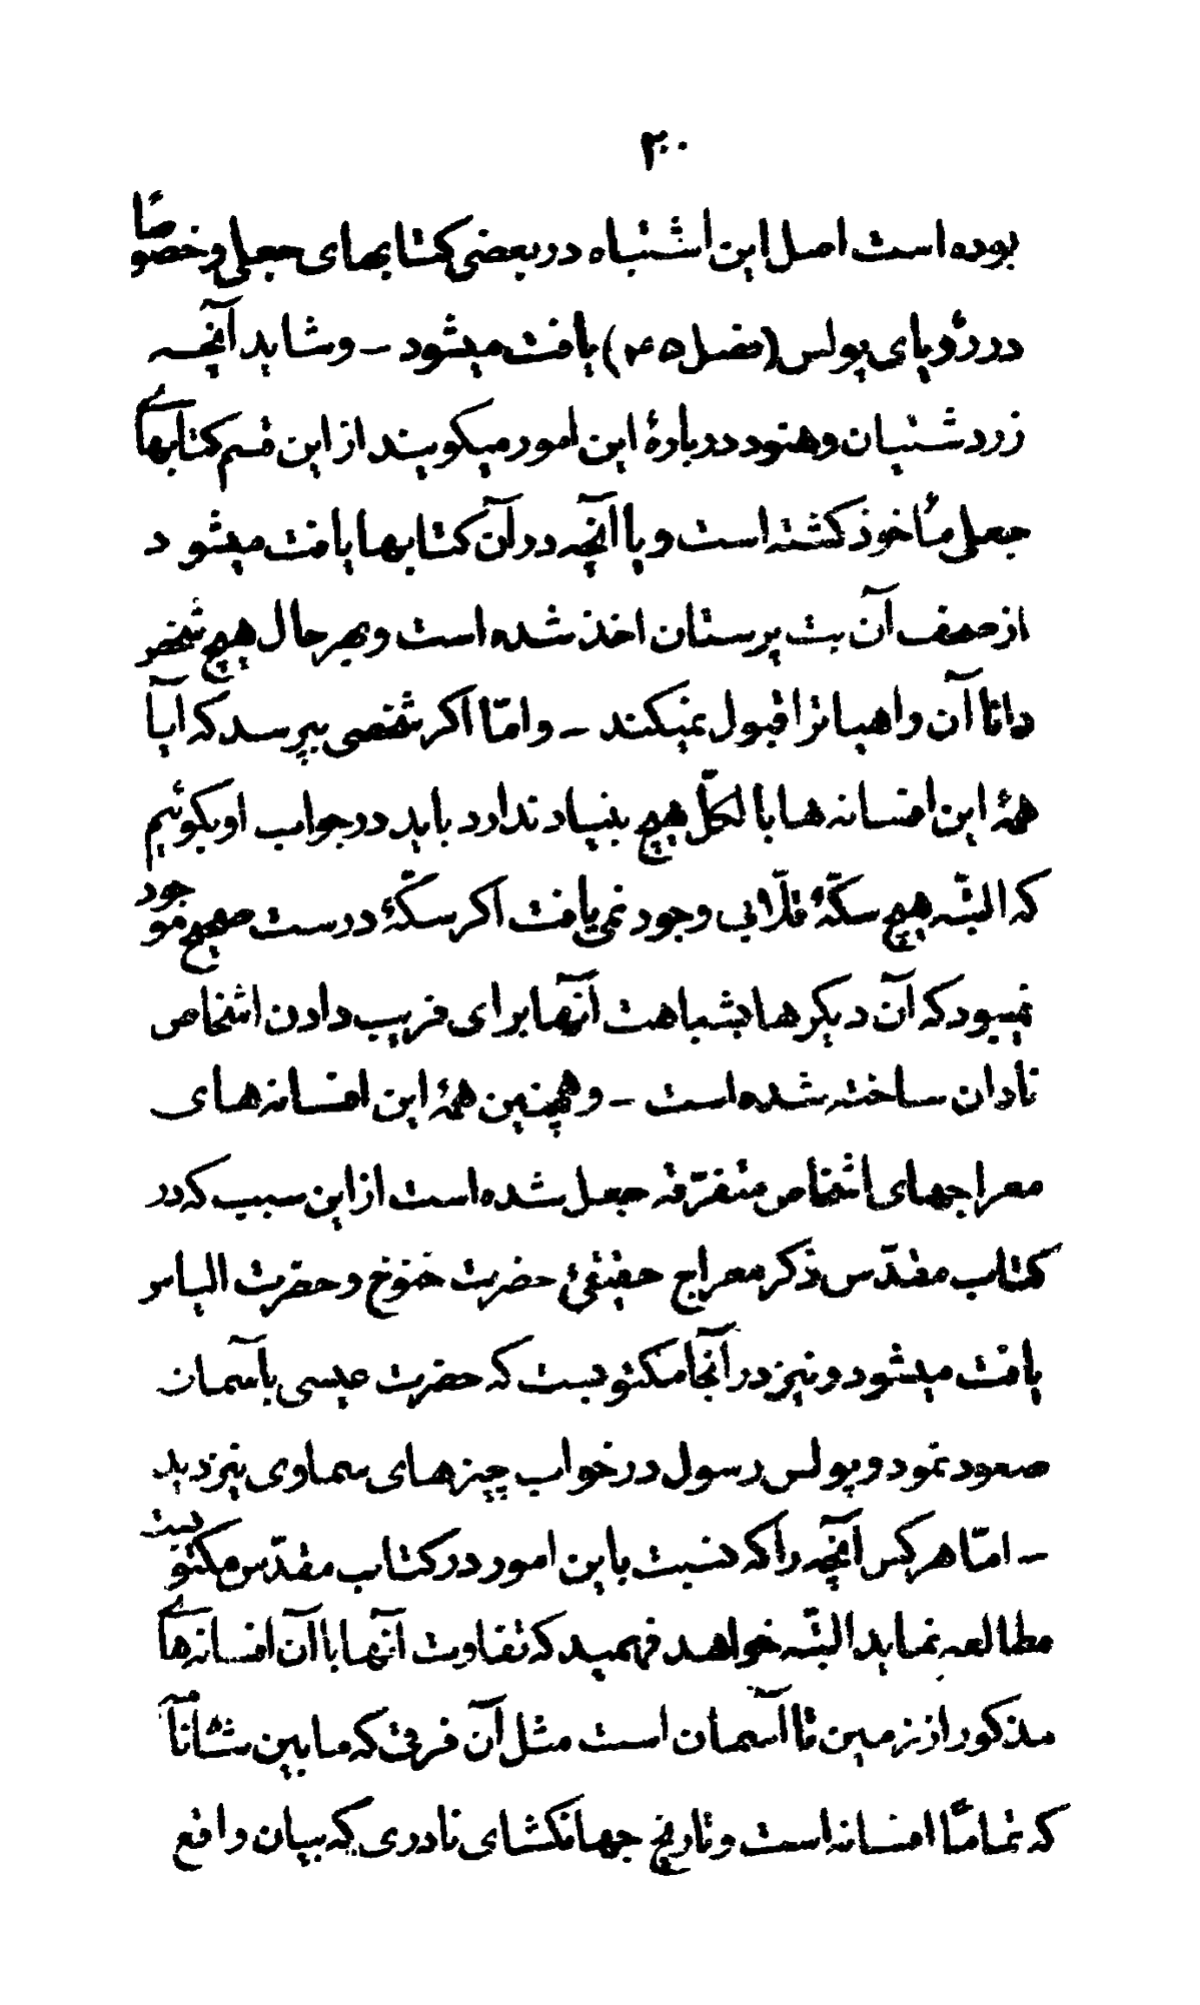 ۲۰۰
بوده است اصل این اشتباه در بعضی کتابهای جعلی و خصوصاً
در رؤیای پولس (فصل ۴۵) یافت میشود – و شاید آنچه
زردشتیان و هنود دربارهٔ این امور میکویند از این قسم کتابهای
جعلی مأخوذ کشته است و یا آنچه در آن کتابها یافت میشود
از صحف آن بت پرستان اخذ شده است و بهر حال هیچ شخص
دانا آن واهیاترا قبول نمیکند – و امّا اکر شخصی بپرسد که آیا
همهٔ این افسانه ها بالکلّ هیچ بنیاد ندارد باید در جواب او بکوئیم
که البتّه هیچ سکّهٔ قلّابی وجود نمی یافت اکر سکّهٔ درست صحیح موجود
نمیبود که آن دیکرها بشباهت آنها برای فریب دادن اشخاص
نادان ساخته شده است – و همچنین همهٔ این افسانه های
معراجهای اشخاص متفرّقه جعل شده است از این سبب که در
کتاب مقدّس ذکر معراج حقیقیٔ حضرت خنوخ و حضرت الیاس
یافت میشود و نیز در آنجا مکتوبست که حضرت عیسی بآسمان
صعود نمود و پولس رسول در خواب چیزهای سماوی نیز دید
– امّا هر کس آنچه را که نسبت باین امور در کتاب مقدّس مکتوبست
مطالعه نماید البتّه خواهد فهمید که تفاوت آنها با آن افسانه های
مذکور از زمین تا آسمان است مثل آن فرقی که ما بین شٰاهنامه
که تماماً افسانه است و تاریخ جهانکشای نادری که بیان واقع